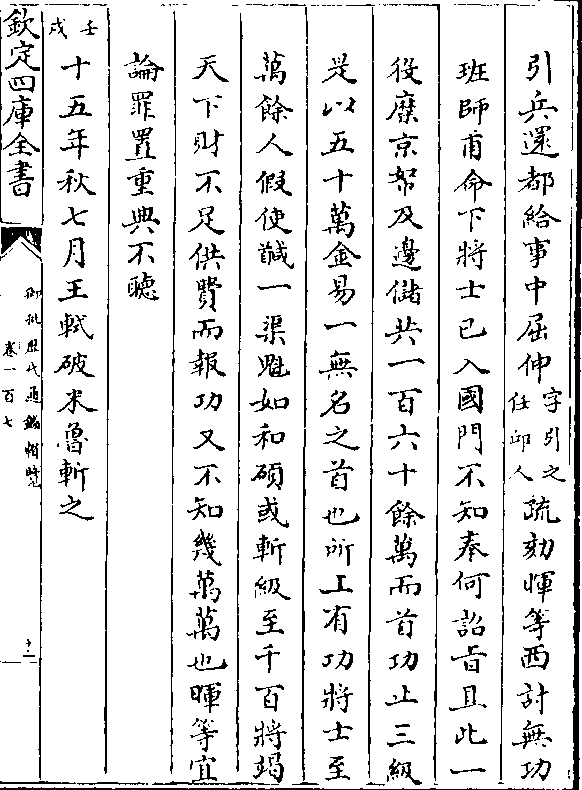 引兵還都給事中屈伸字引之任邱人疏劾暉等西討無功
班師甫命下將士已入國門不知奉何詔旨且此一
役糜京帑及邊儲共一百六十餘萬而首功止三級
是以五十萬金易一無名之首也所上有功將士至
萬餘人假使馘一渠魁如和碩或斬級至千百將竭
天下財不足供費而報功又不知幾萬萬也暉等宜
論罪置重典不聽
壬戌
十五年秋七月王軾破米魯斬之
欽定四庫全書
御批歷代通鑑輯覽
卷一百七
十二